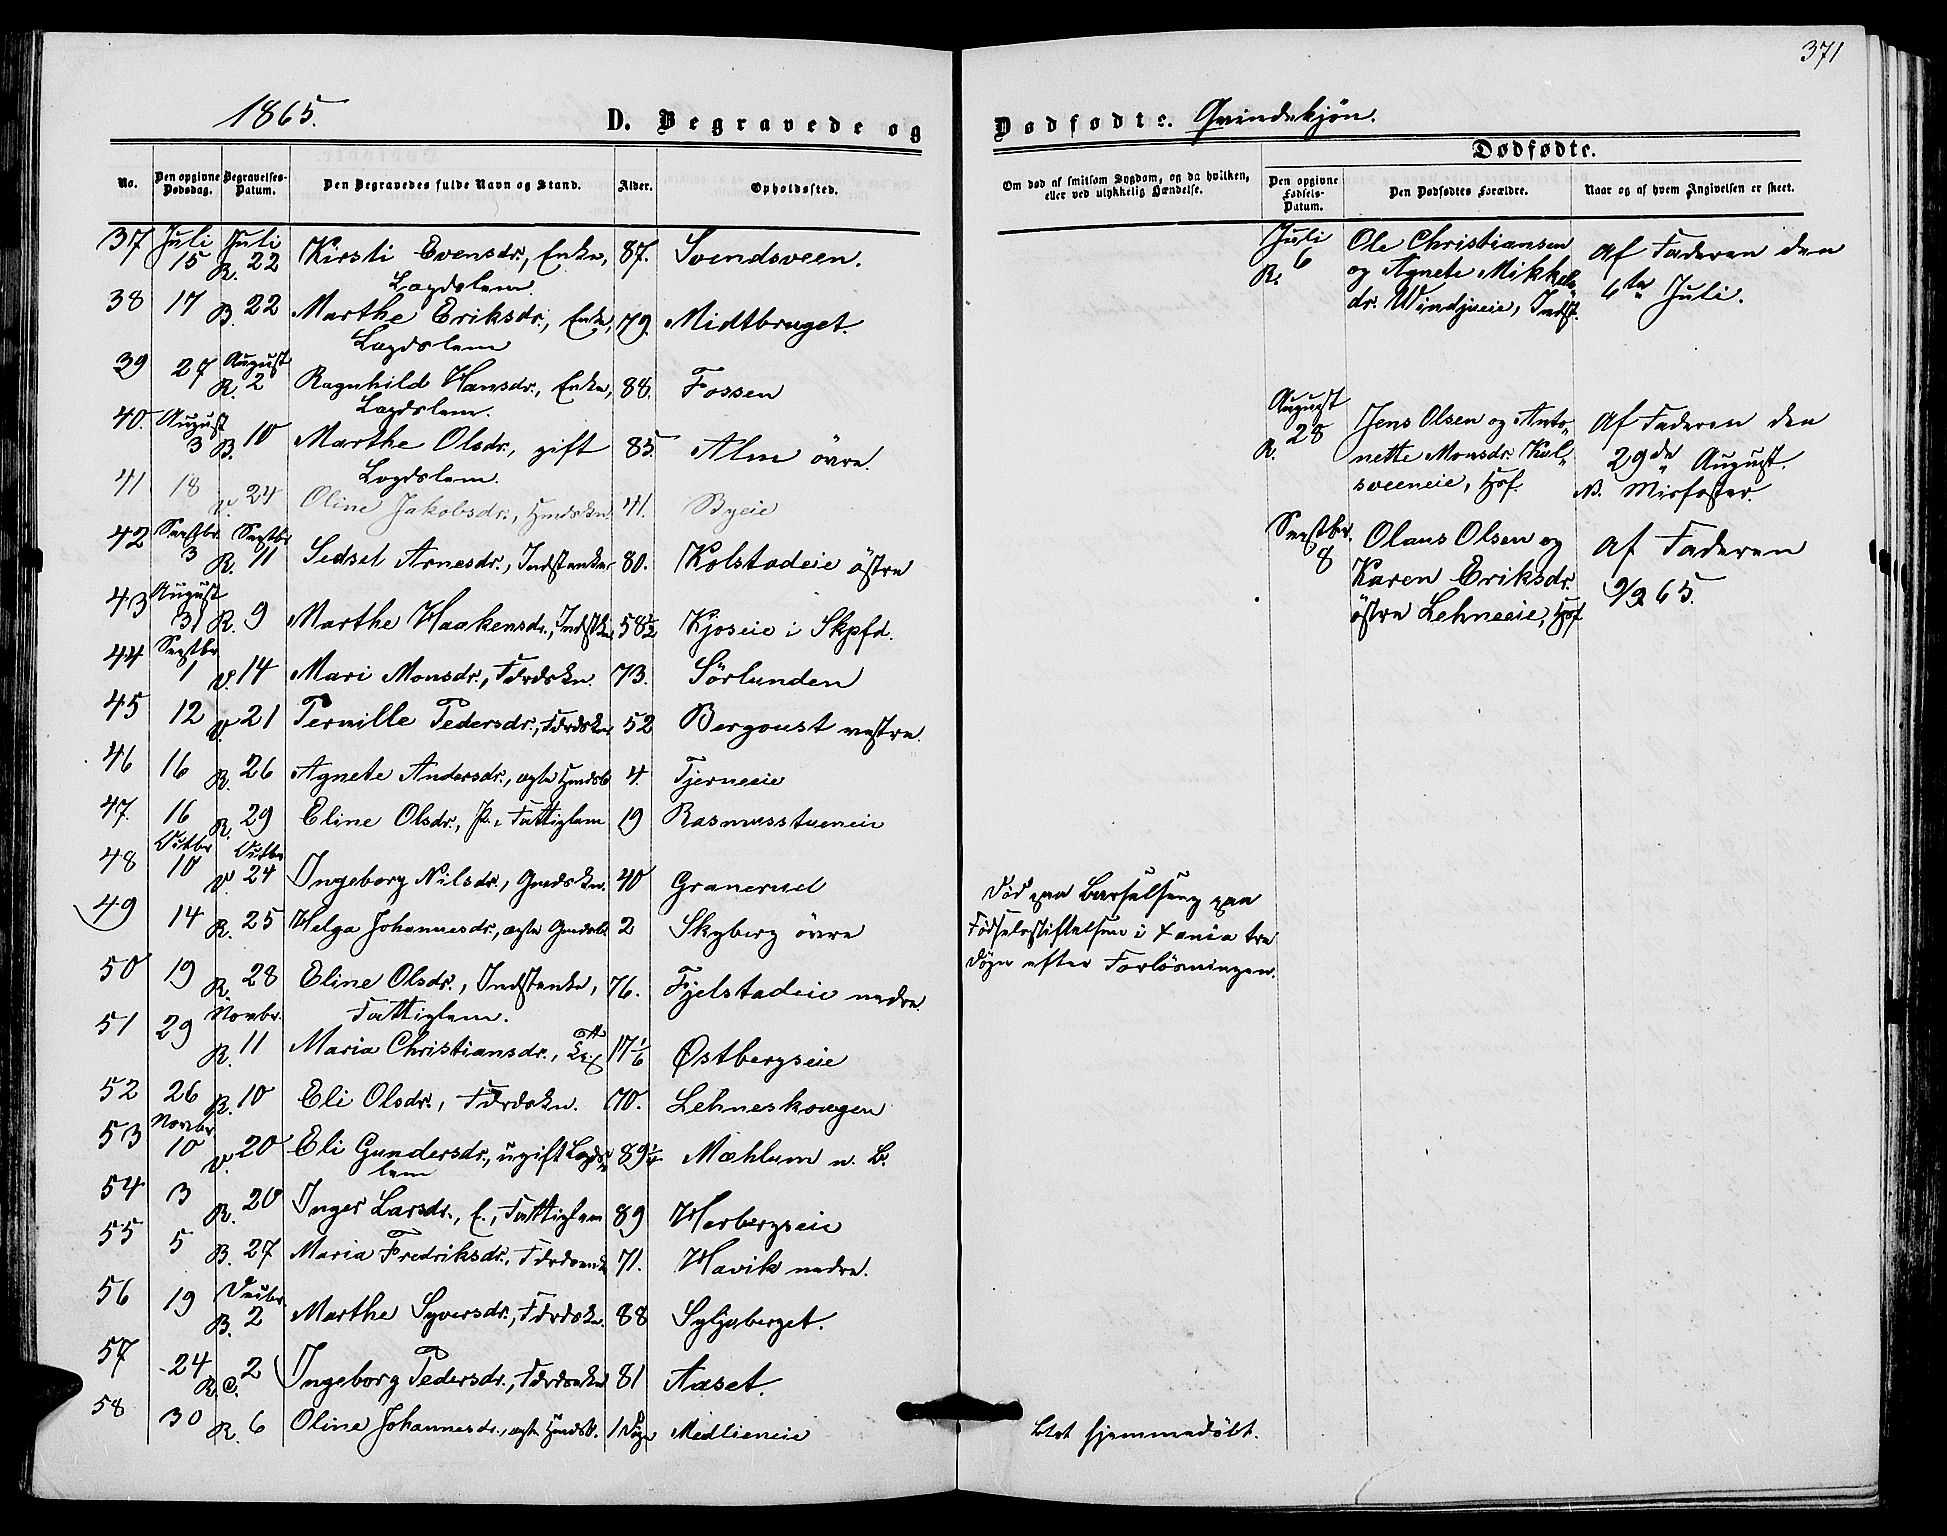 371
1865.
D. Begravede og Dødfødte. Qvindekjøn.
No. Den opgivne Dødsdag. Begravelses-Datum. Den Begravedes fulde Navn og Stand. Alder. Opholdssted.
Om død af smitsom Sygdom, og da hvilken, eller ved ulykkelig Hændelse.
Dødfødte.
Den opgivne Fødsels-Datum. Den Dødfødtes Forældre. Naar og af hvem Angivelsen er skeet.
37 Juli 15 Juli R. 22 Kirsti Evensdr., Enke, 87. Svendsveen.
Lægdslem.
38 17 B. 22 Marthe Eriksdr., Enke, 79. Midtbruget.
Lægdslem
39 27 August R. 2 Ragnhild Hansdr., Enke, 88. Fossen
Lægdslem.
40. August 3 B. 10 Marthe Olsdr., gift 85. Alm övre.
Lægdslem.
41 18 V. 24 Oline Jakobsdr., Hmdskn. 41. Byeie
42 Septbr. 3 Septbr R. 11 Sidsel Arnesdr., Indstenke 80. Kolstadeie östre
43 August 31 R. 9 Marthe Haakensdr., Indstkn. 58½ Kjoseie i Skpfd.
44 Septbr. 1 V. 14 Mari Monsdr., Fdrdskn. 73. Sörlunden
45 12 V. 21 Pernille Pedersdr., Fdrdskn 52 Bergoust vestre.
46 16 R. 26 Agnete Andersdr., ægte Hmdsb 4. Tjerneeie
47. 16 R. 29 Eline Olsdr., P., Fattiglem 19 Rasmusstueneie
48 Octbr 10 Octbr V. 24 Ingeborg Nilsdr., Gmdskn. 40 Granerud
49 14 R. 25 Helga Johannesdr., ægte Gmdsb. 2 Skyberg övre
50 19 R. 28 Eline Olsdr., Indstenke, 76. Fjelstadeie nedre
Fattiglem.
51 29 Novbr. R. 11 Maria Christiansdr., 17 1/6 Østbergseie
52 26 R. 10 Eli Olsdr., Fdrdskn. 70. Lehneskougen
53 Novbr 10 V. 20 Eli Gundersdr., ugift Lægds- 89¼ Mæhlum n. B.
lem
54 3 R. 20 Inger Larsdr., E., Fattiglem 89 Harbergseie
55 5 B. 27 Maria Fredriksdr., Fdrdsenke 71. Havik nedre.
56 19 Decbr. B. 2 Marthe Syversdr., Fdrdskn. 88 Syljuberget.
57 24 R. C. 2 Ingeborg Pedersdr., Fdrdsenke 81 Aaset.
58 30 R. 6 Oline Johannesdr., ægte Hmdsb. 1 Dögn Medlieneie
Død paa Barselseng paa
Födselsstiftelsen i Xania tre
Dögn efter Forlösningen.
Blet hjemmedöbt.
Juli 6 R. Ole Christiansen
og Agnete Mikkels-
dr. Windjueie, Indst.
Af Faderen den
6te Juli.
August 28 R. Jens Olsen og Anto-
nette Monsdr. Kal-
sveeneie, Hsf.
Af Faderen den
29de August.
NB. Misfoster.
Septbr. 8 Olaus Olsen og
Karen Eriksdr.
östre Lehneeie, Hsf
Af Faderen
9/9 65.